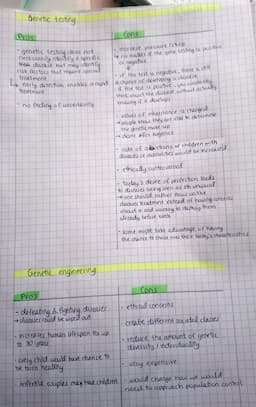 Genetic testing
Pros
Cons
- genetic testing does not
necessarily identify a specific
disease but may identify
risk factors that require special
treatment
↳ early detection enables a rapid
treatment
- no feeling of uncertainty
- increases pressure / stress
→ no matter if the gene testing is positive
or negative
• if the test is negative, there is still
a chance of developing a disease
• if the test is positive, you constantly
think about the disease without actually
knowing if it develops
- ethics of inheritance is changed
→ people think they are able to determine
the genetic make up
- rate of abortions of children with
diseases or disabilities would be increased
- ethically controversial
- today's desire of perfection leads
to diseases being seen as
→ one should rather focus on the
disease treatment instead of having concerns
about it and wanting to destroy them
already before birth
- some might take advantage of having
the chance to choose their baby's characteristics
Genetic engineering
Pros
Cons
- defeating & fighting diseases
→ diseases could be wiped out
- increases human lifespan for up
to years
- every child would have chance to
be born healthy
- infertile couples may have children
- ethical concerns
- create different societal classes
- reduce the amount of genetic
diversity / individuality
- very expensive
- would change how we would
need to approach population control